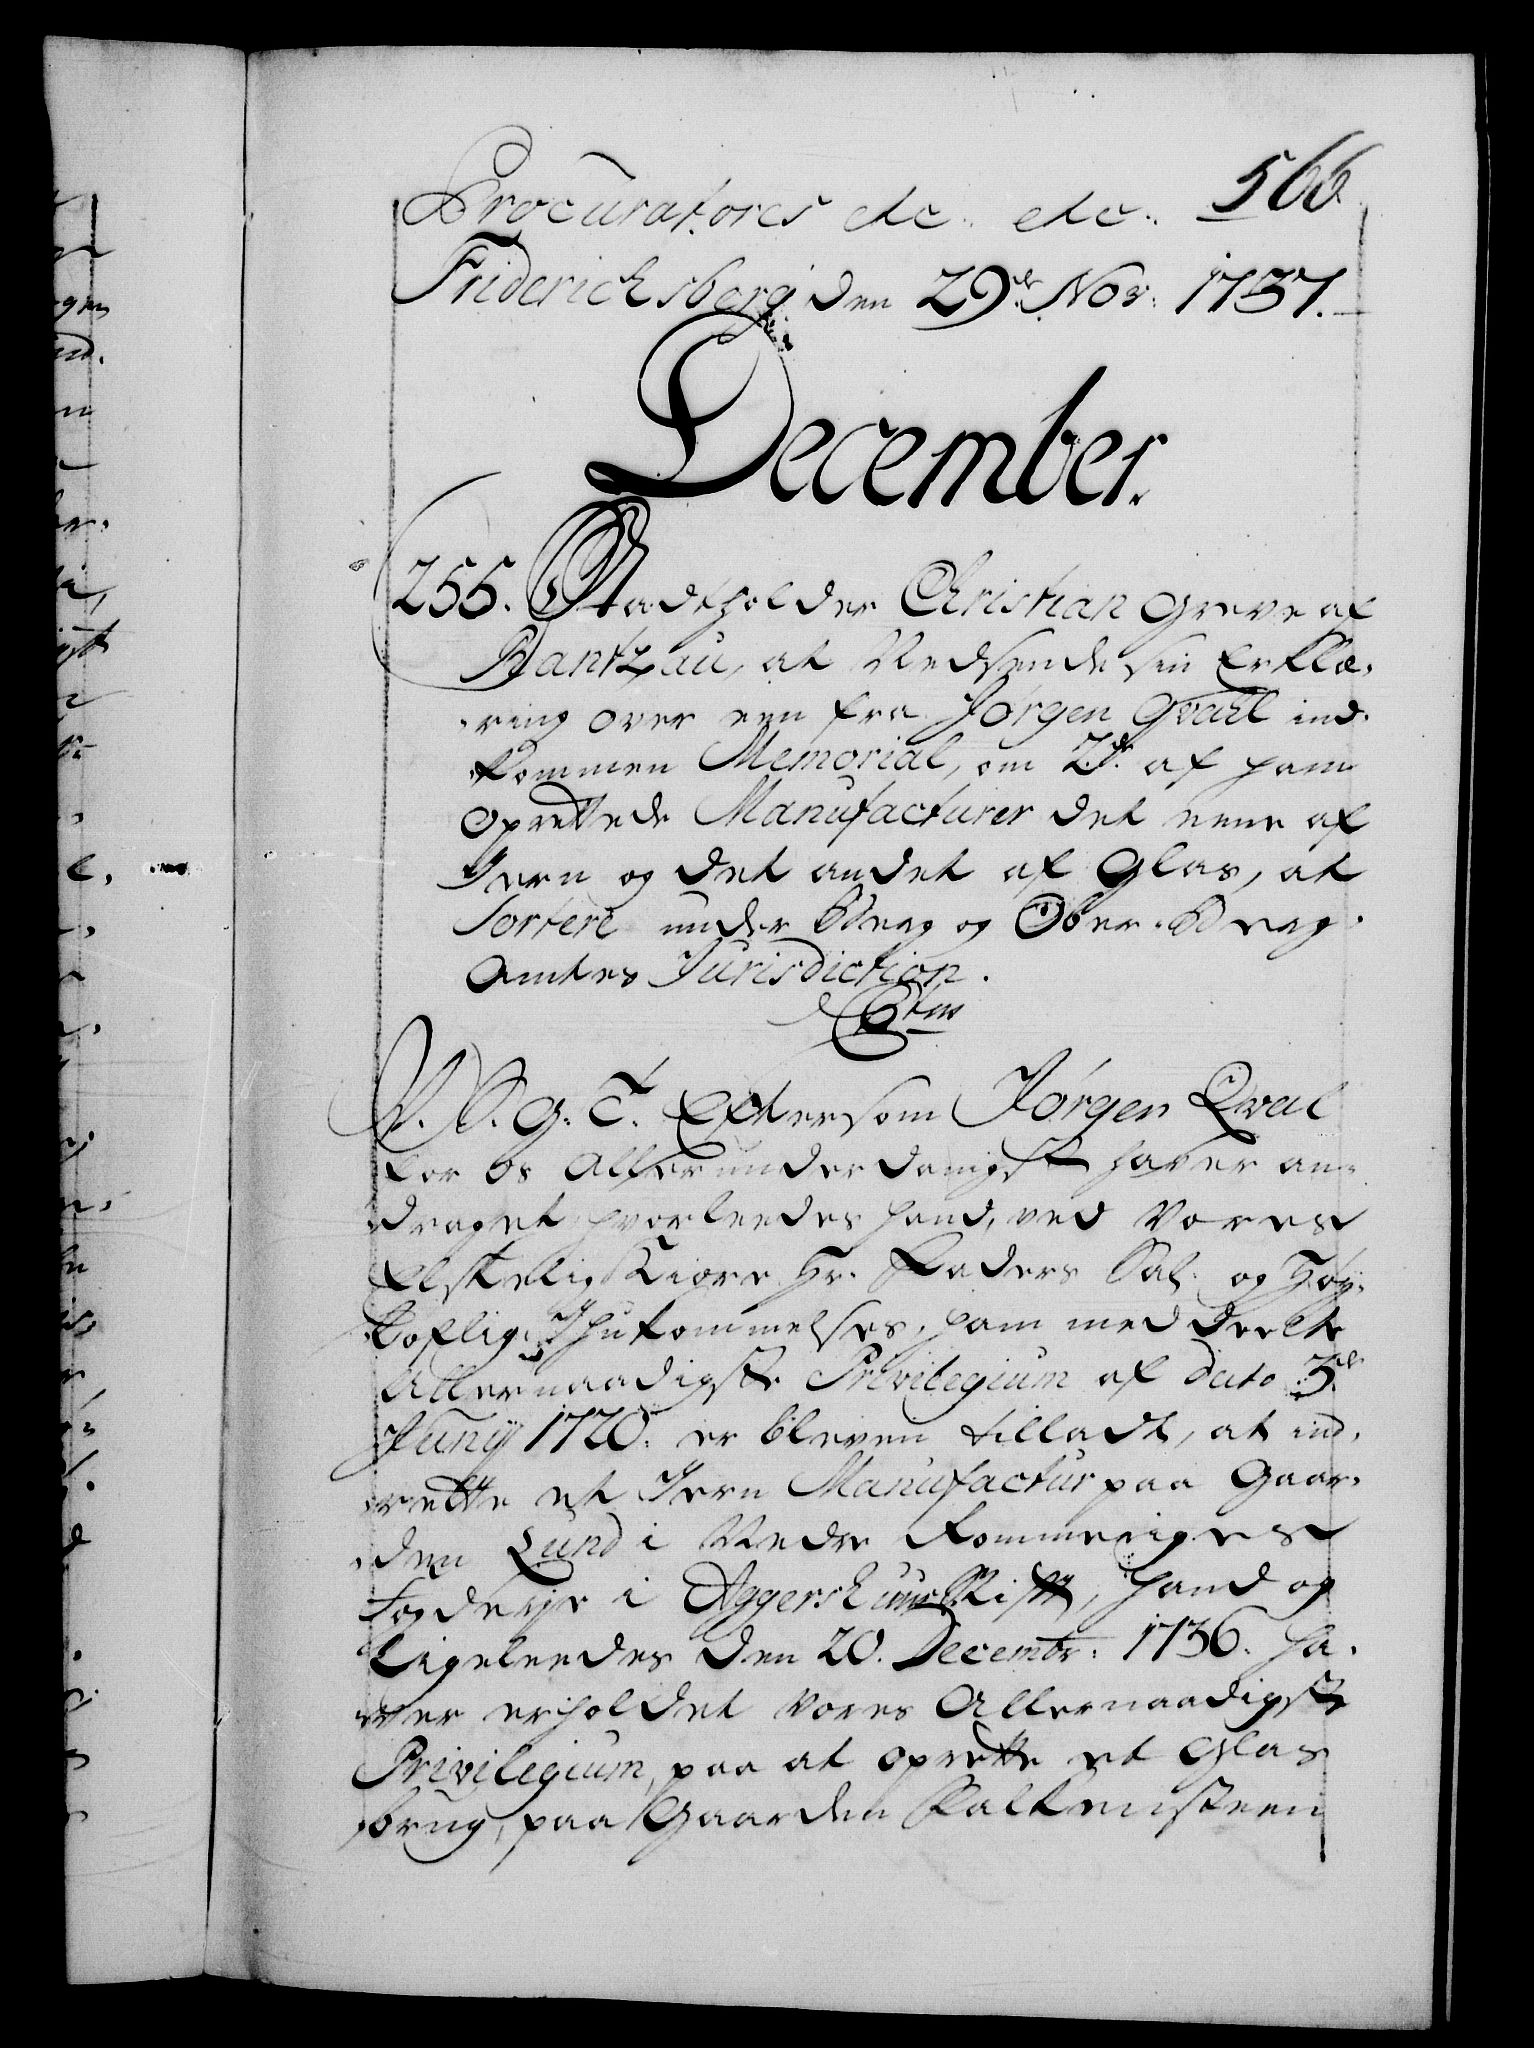 566
Procuratores etc. etc.
Friderichsberg den 29de Nov: 1737.
December.
255. Stadtholder Christian Greve af
Rantzau, at Nedsende sin Erklæ-
ring over een fra Jørgen Qvahl ind-
kommen Memorial, om 2de af ham
oprettede Manufacturer det eene af
Jern og det andet af Glas, at
Sortere under Berg og Ober-Berg-
Amtes Jurisdiction.
C 6tus
V. S. G. T. Eftersom Jørgen Qval
for os Allerunderdanigst haver an-
draget, hvorleedes hand, ved Vores
Elskelig Kiære Hr. Faders Sal: og Høy-
loflig Ihukommelses, ham meddeelte
Allernaadigste Privilegium af dato 3de
Junij 1720: er bleven tilladt, at ind-
rette et Jern Manufactur paa Gaar-
den Lund i Nedre Rommeriges
Fogderje i Aggershuus Stift, hand og
Ligeleedes den 20. Decembr: 1736. ha-
ver erholdet Vores Allernaadigste
Privilegium, paa at oprette et Glas
brug, paa Gaarden Falkensteen